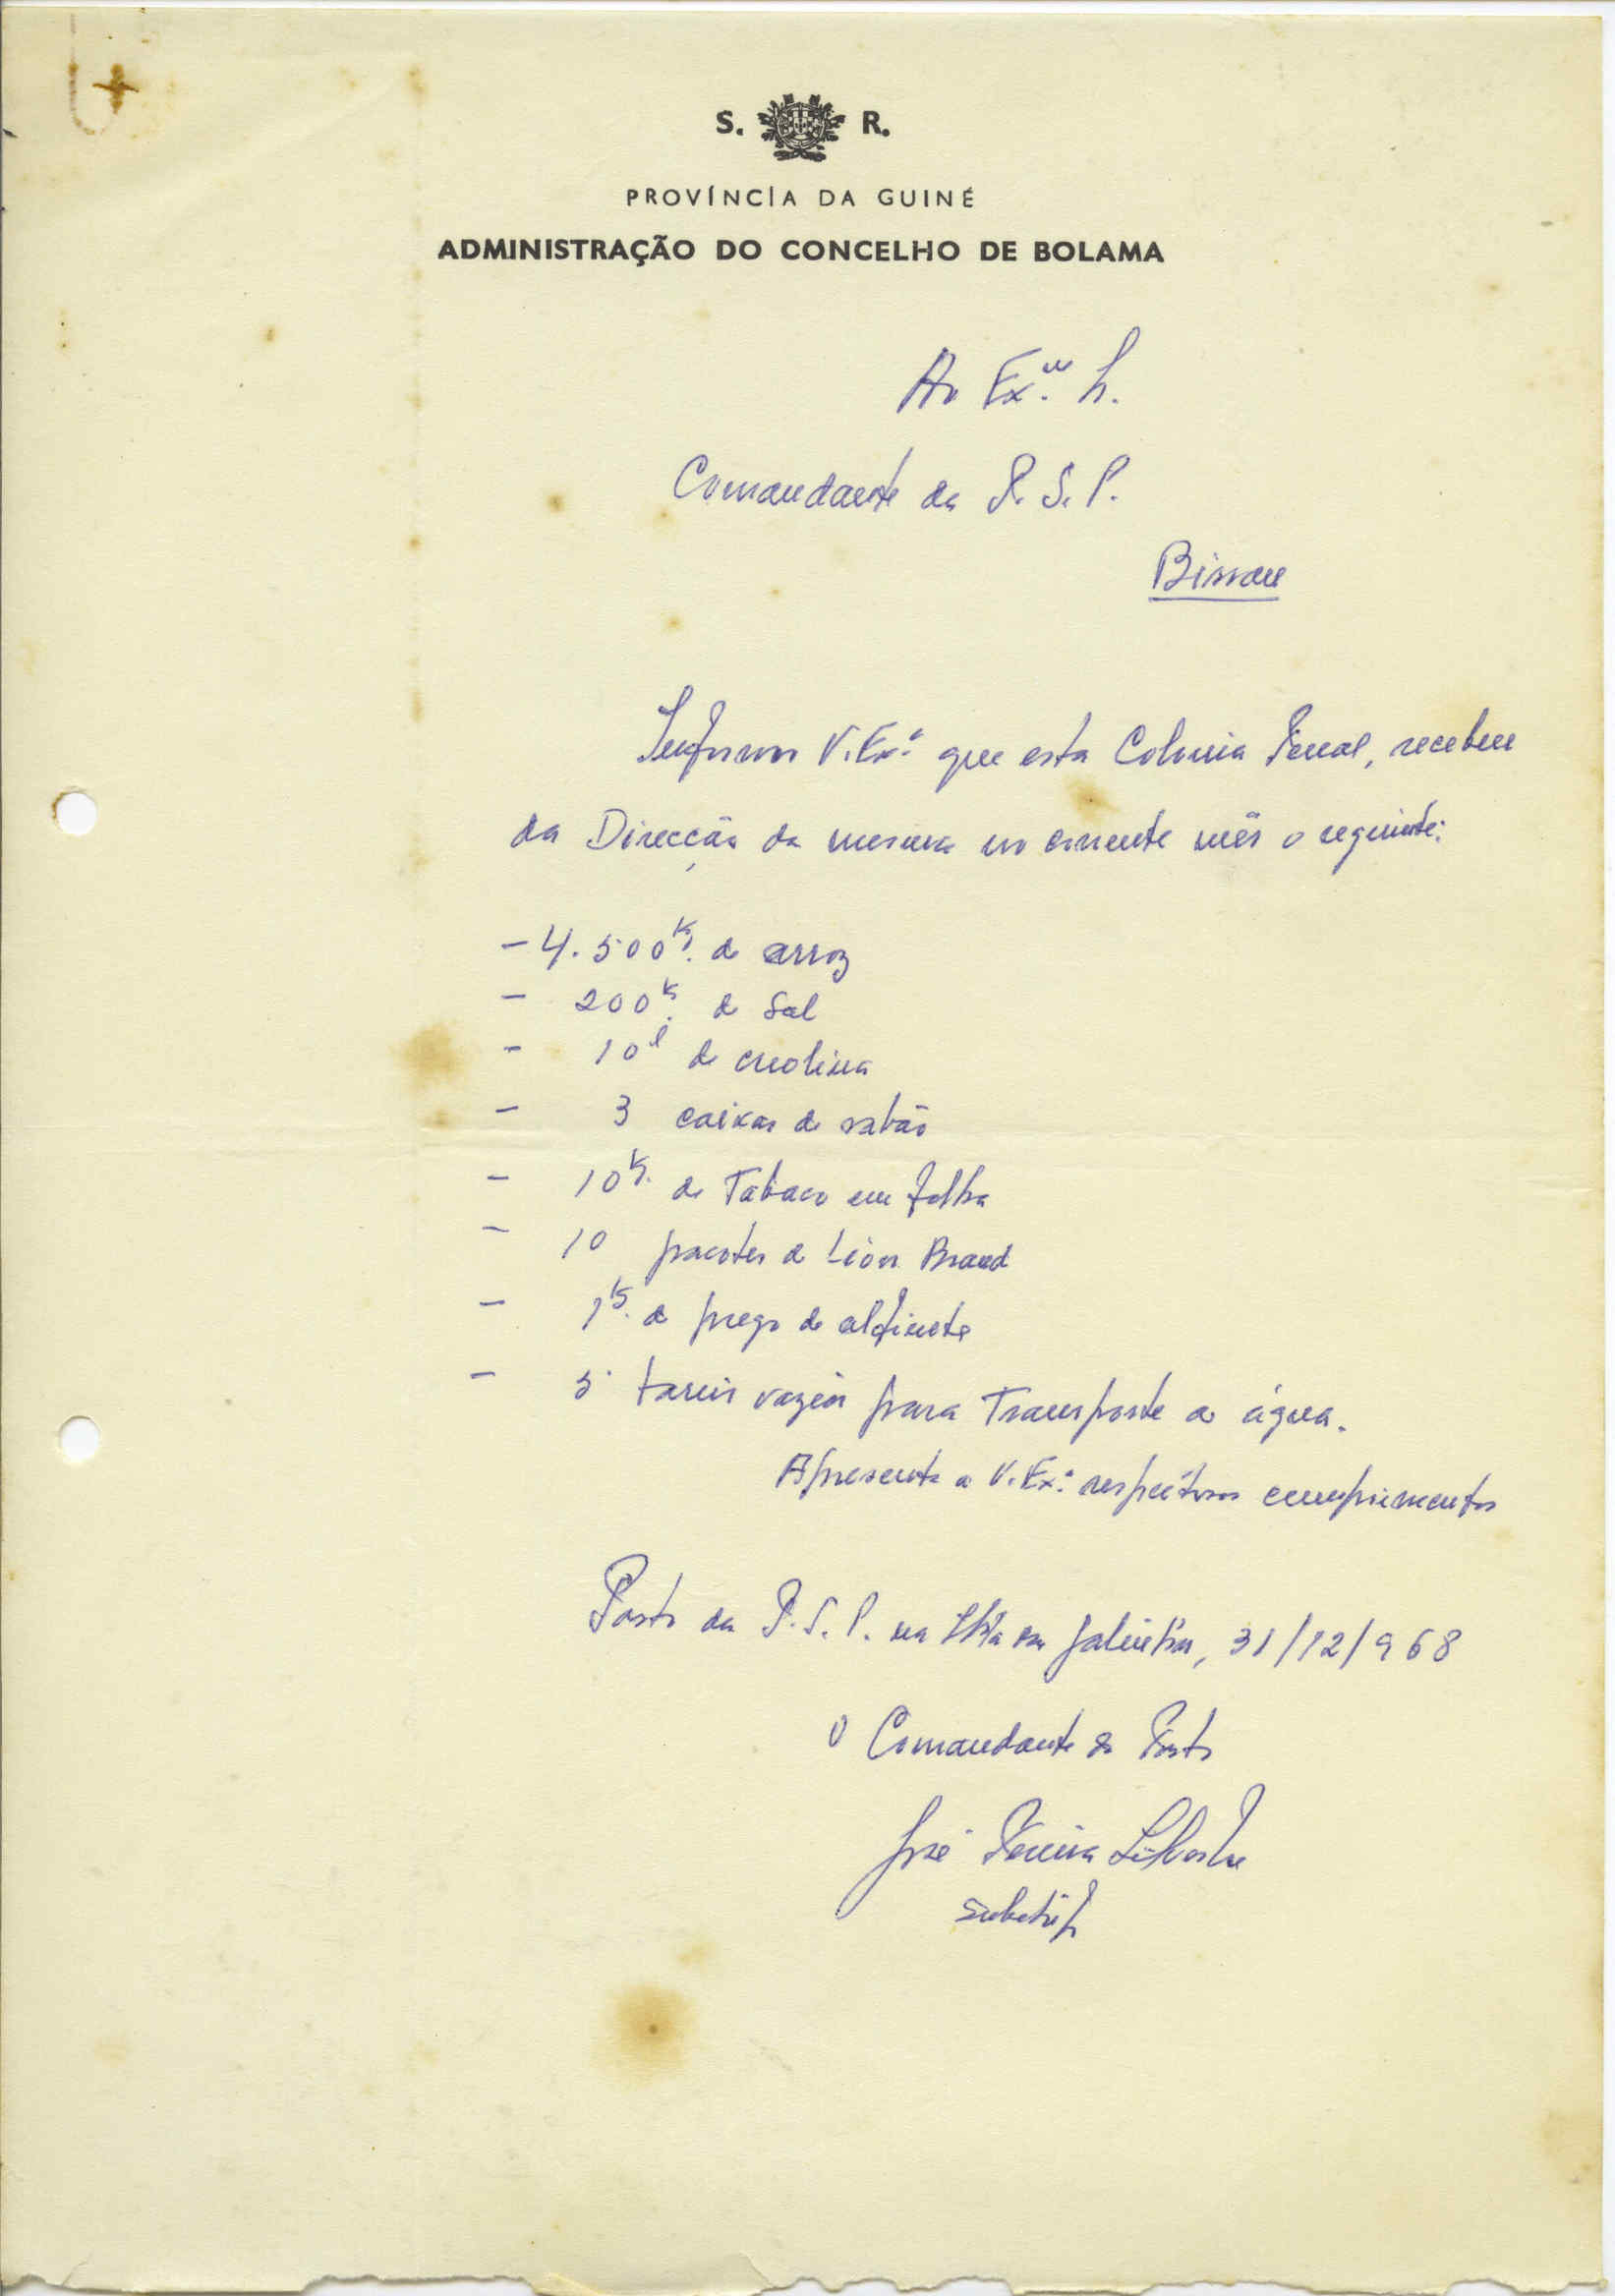 S. R.
PROVÍNCIA DA GUINÉ
ADMINISTRAÇÃO DO CONCELHO DE BOLAMA
Ao Ex.mo Sr.
Comandante da P. S. P.
Bissau
Informo V. Ex.ª que esta Colonia Penal, recebeu
da Direcção da mesma no corrente mês o seguinte:
- 4.500 K. de arroz
- 200 K. de Sal
- 10 l de creolina
- 3 caixas de sabão
- 10 K. de Tabaco em folha
- 10 pacotes de Lion Brand
- 1 K. de prego de alfinete
- 5 barris vazios para Transporte de água.
Apresento a V. Ex.ª respeitosos cumprimentos
Posto da P. S. P. na Ilha das Galinhas, 31/12/968
O Comandante do Posto
José Pereira Silvestre